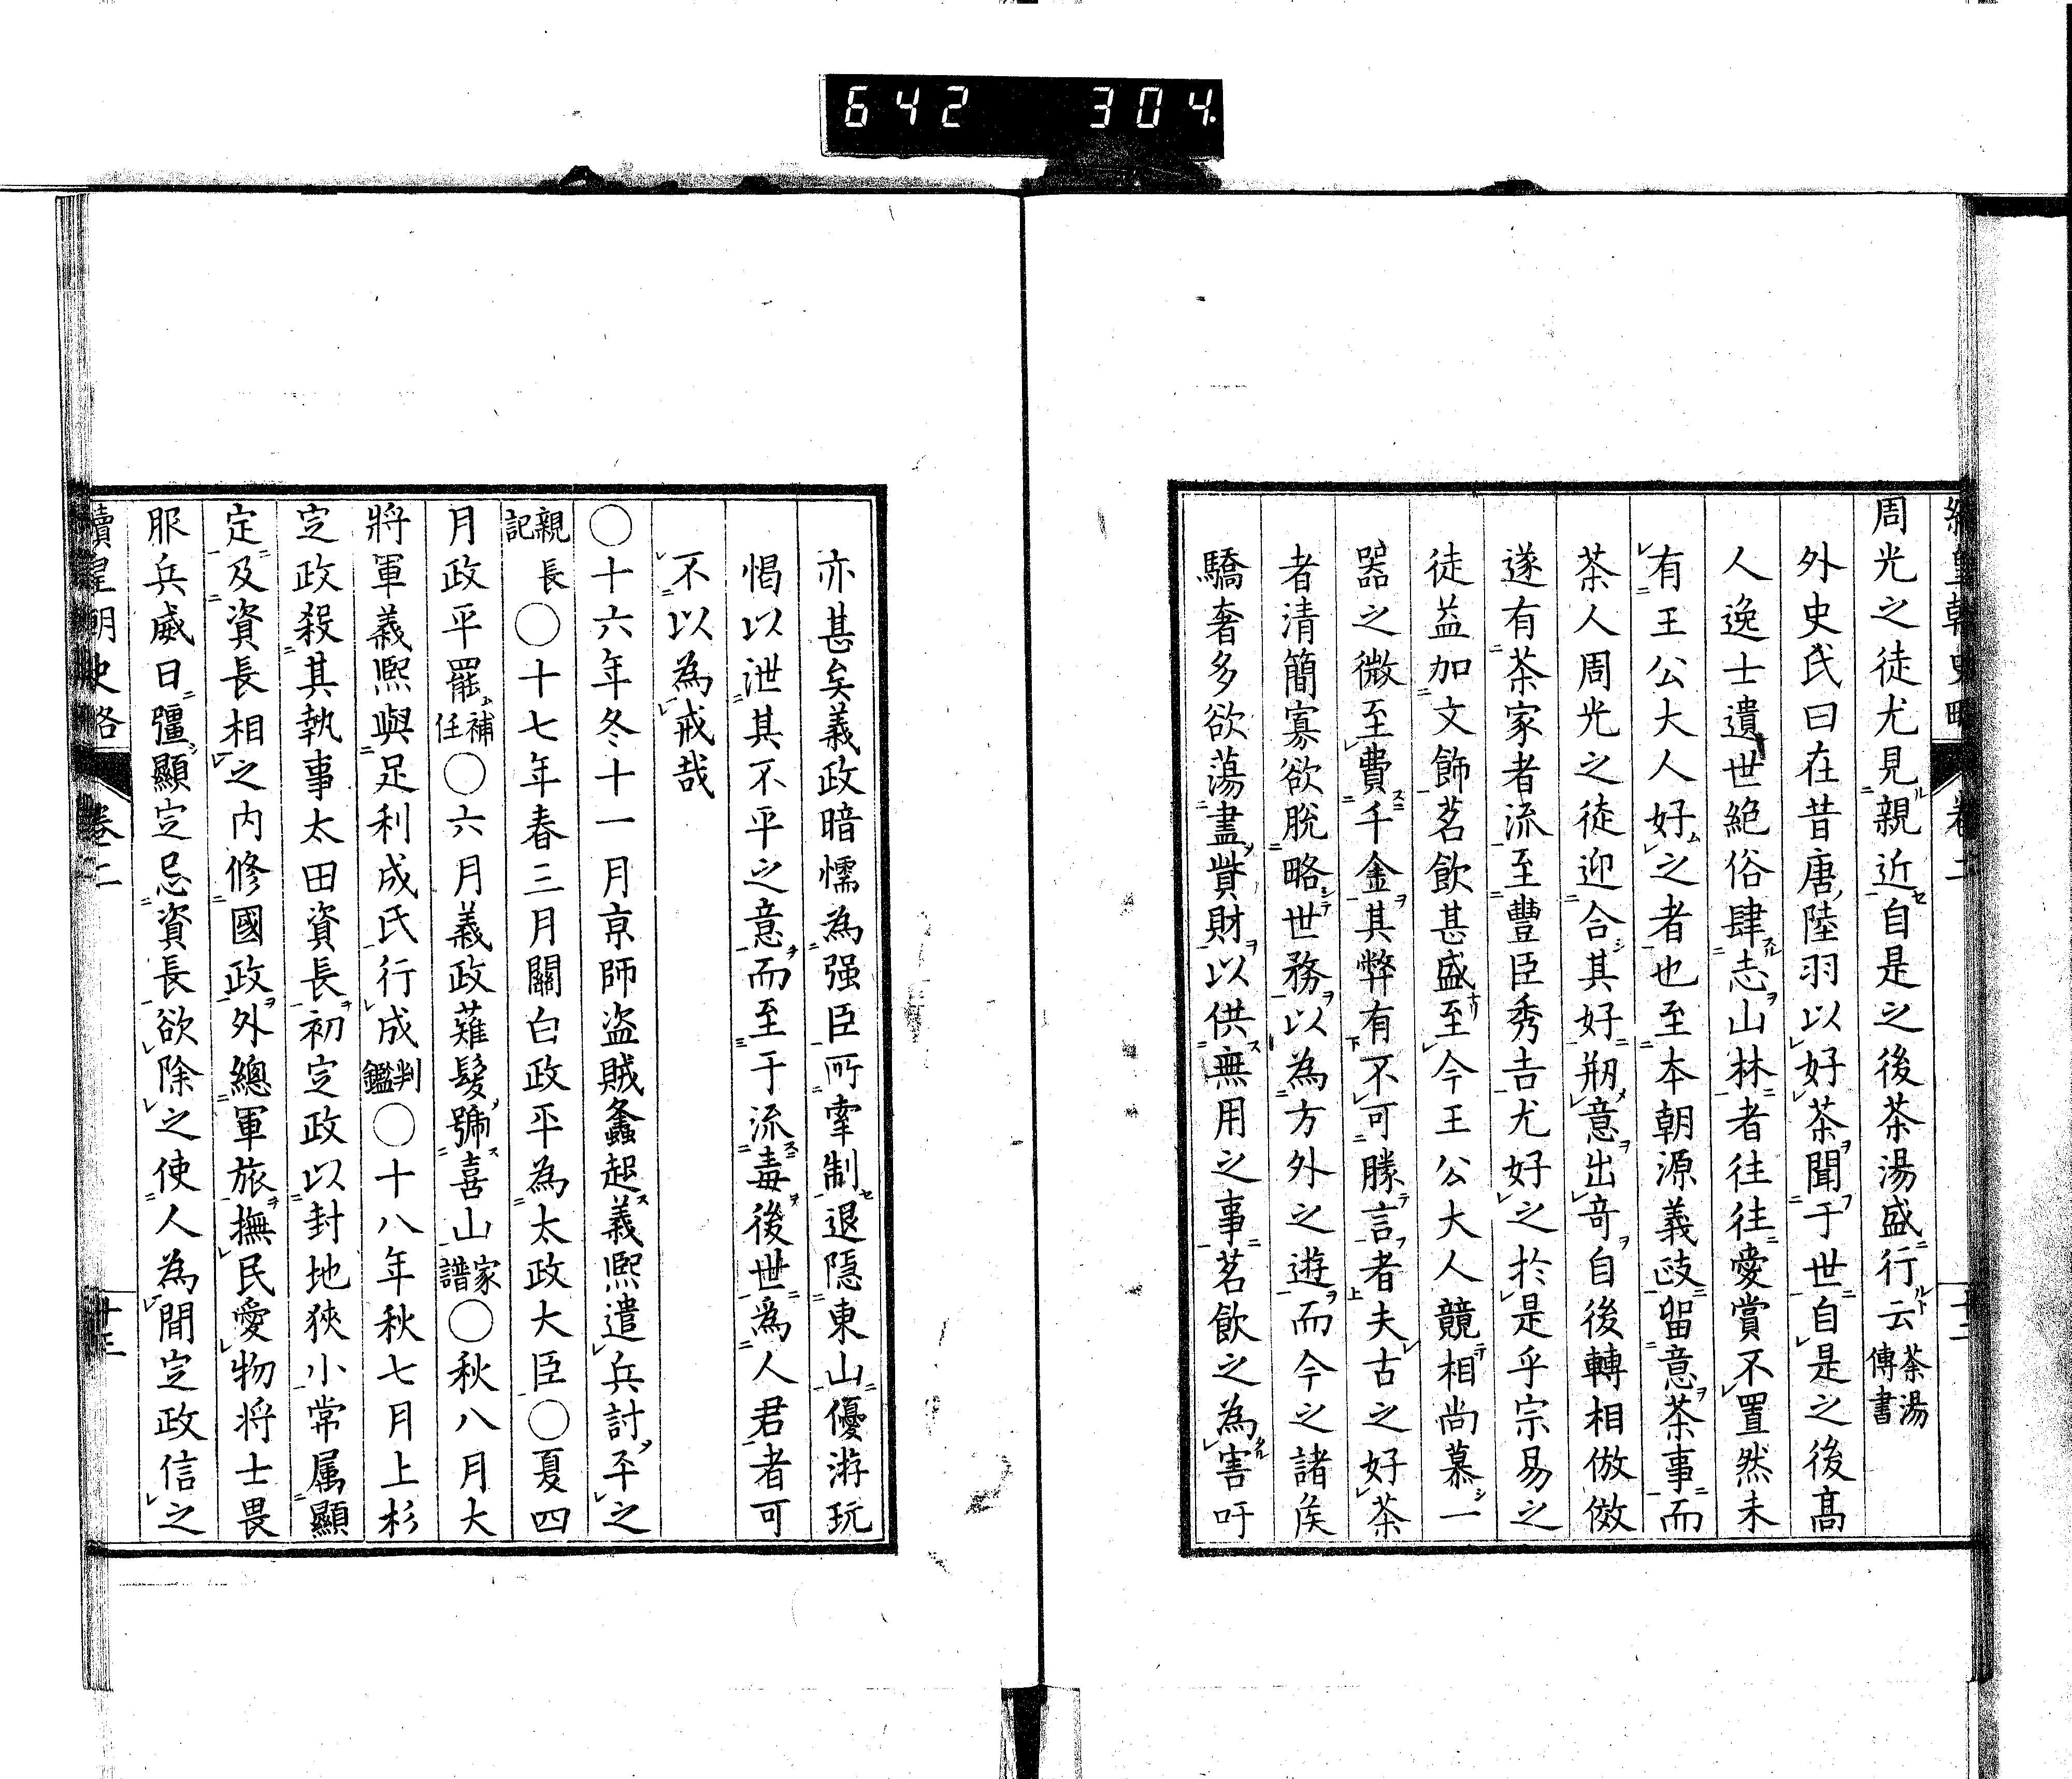 642 304
續皇朝史略 卷二 十二
周光之徒尤見親近自是之後茶湯盛行云茶湯傳書
外史氏曰在昔唐陸羽以好茶聞于世自是之後髙
人逸士遺世絶俗肆志山林者往往愛賞不置然未
有王公大人好之者也至本朝源義政留意茶事而
茶人周光之徒迎合其好剏意出奇自後轉相倣傚
遂有茶家者流至豐臣秀吉尤好之於是乎宗易之
徒益加文飾茗飲甚盛至今王公大人競相尚慕一
器之微至費千金其弊有不可勝言者夫古之好茶
者清簡寡欲脱略世務以為方外之遊而今之諸矦
驕奢多欲蕩盡貲財以供無用之事茗飲之為害吁
亦甚矣義政暗懦為强臣所牽制退隱東山優游玩
愒以泄其不平之意而至于流毒後世為人君者可
不以為戒哉
〇十六年冬十一月京師盜賊螽起義熙遣兵討平之
親長記〇十七年春三月關白政平為太政大臣〇夏四
月政平罷補任〇六月義政薙髮號喜山家譜〇秋八月大
將軍義熙與足利成氏行成判鑑〇十八年秋七月上杉
定政殺其執事太田資長初定政以封地狹小常属顯
定及資長相之内修國政外總軍旅撫民愛物將士畏
服兵威日彊顯定忌資長欲除之使人為間定政信之
續皇朝史略 卷二 十三